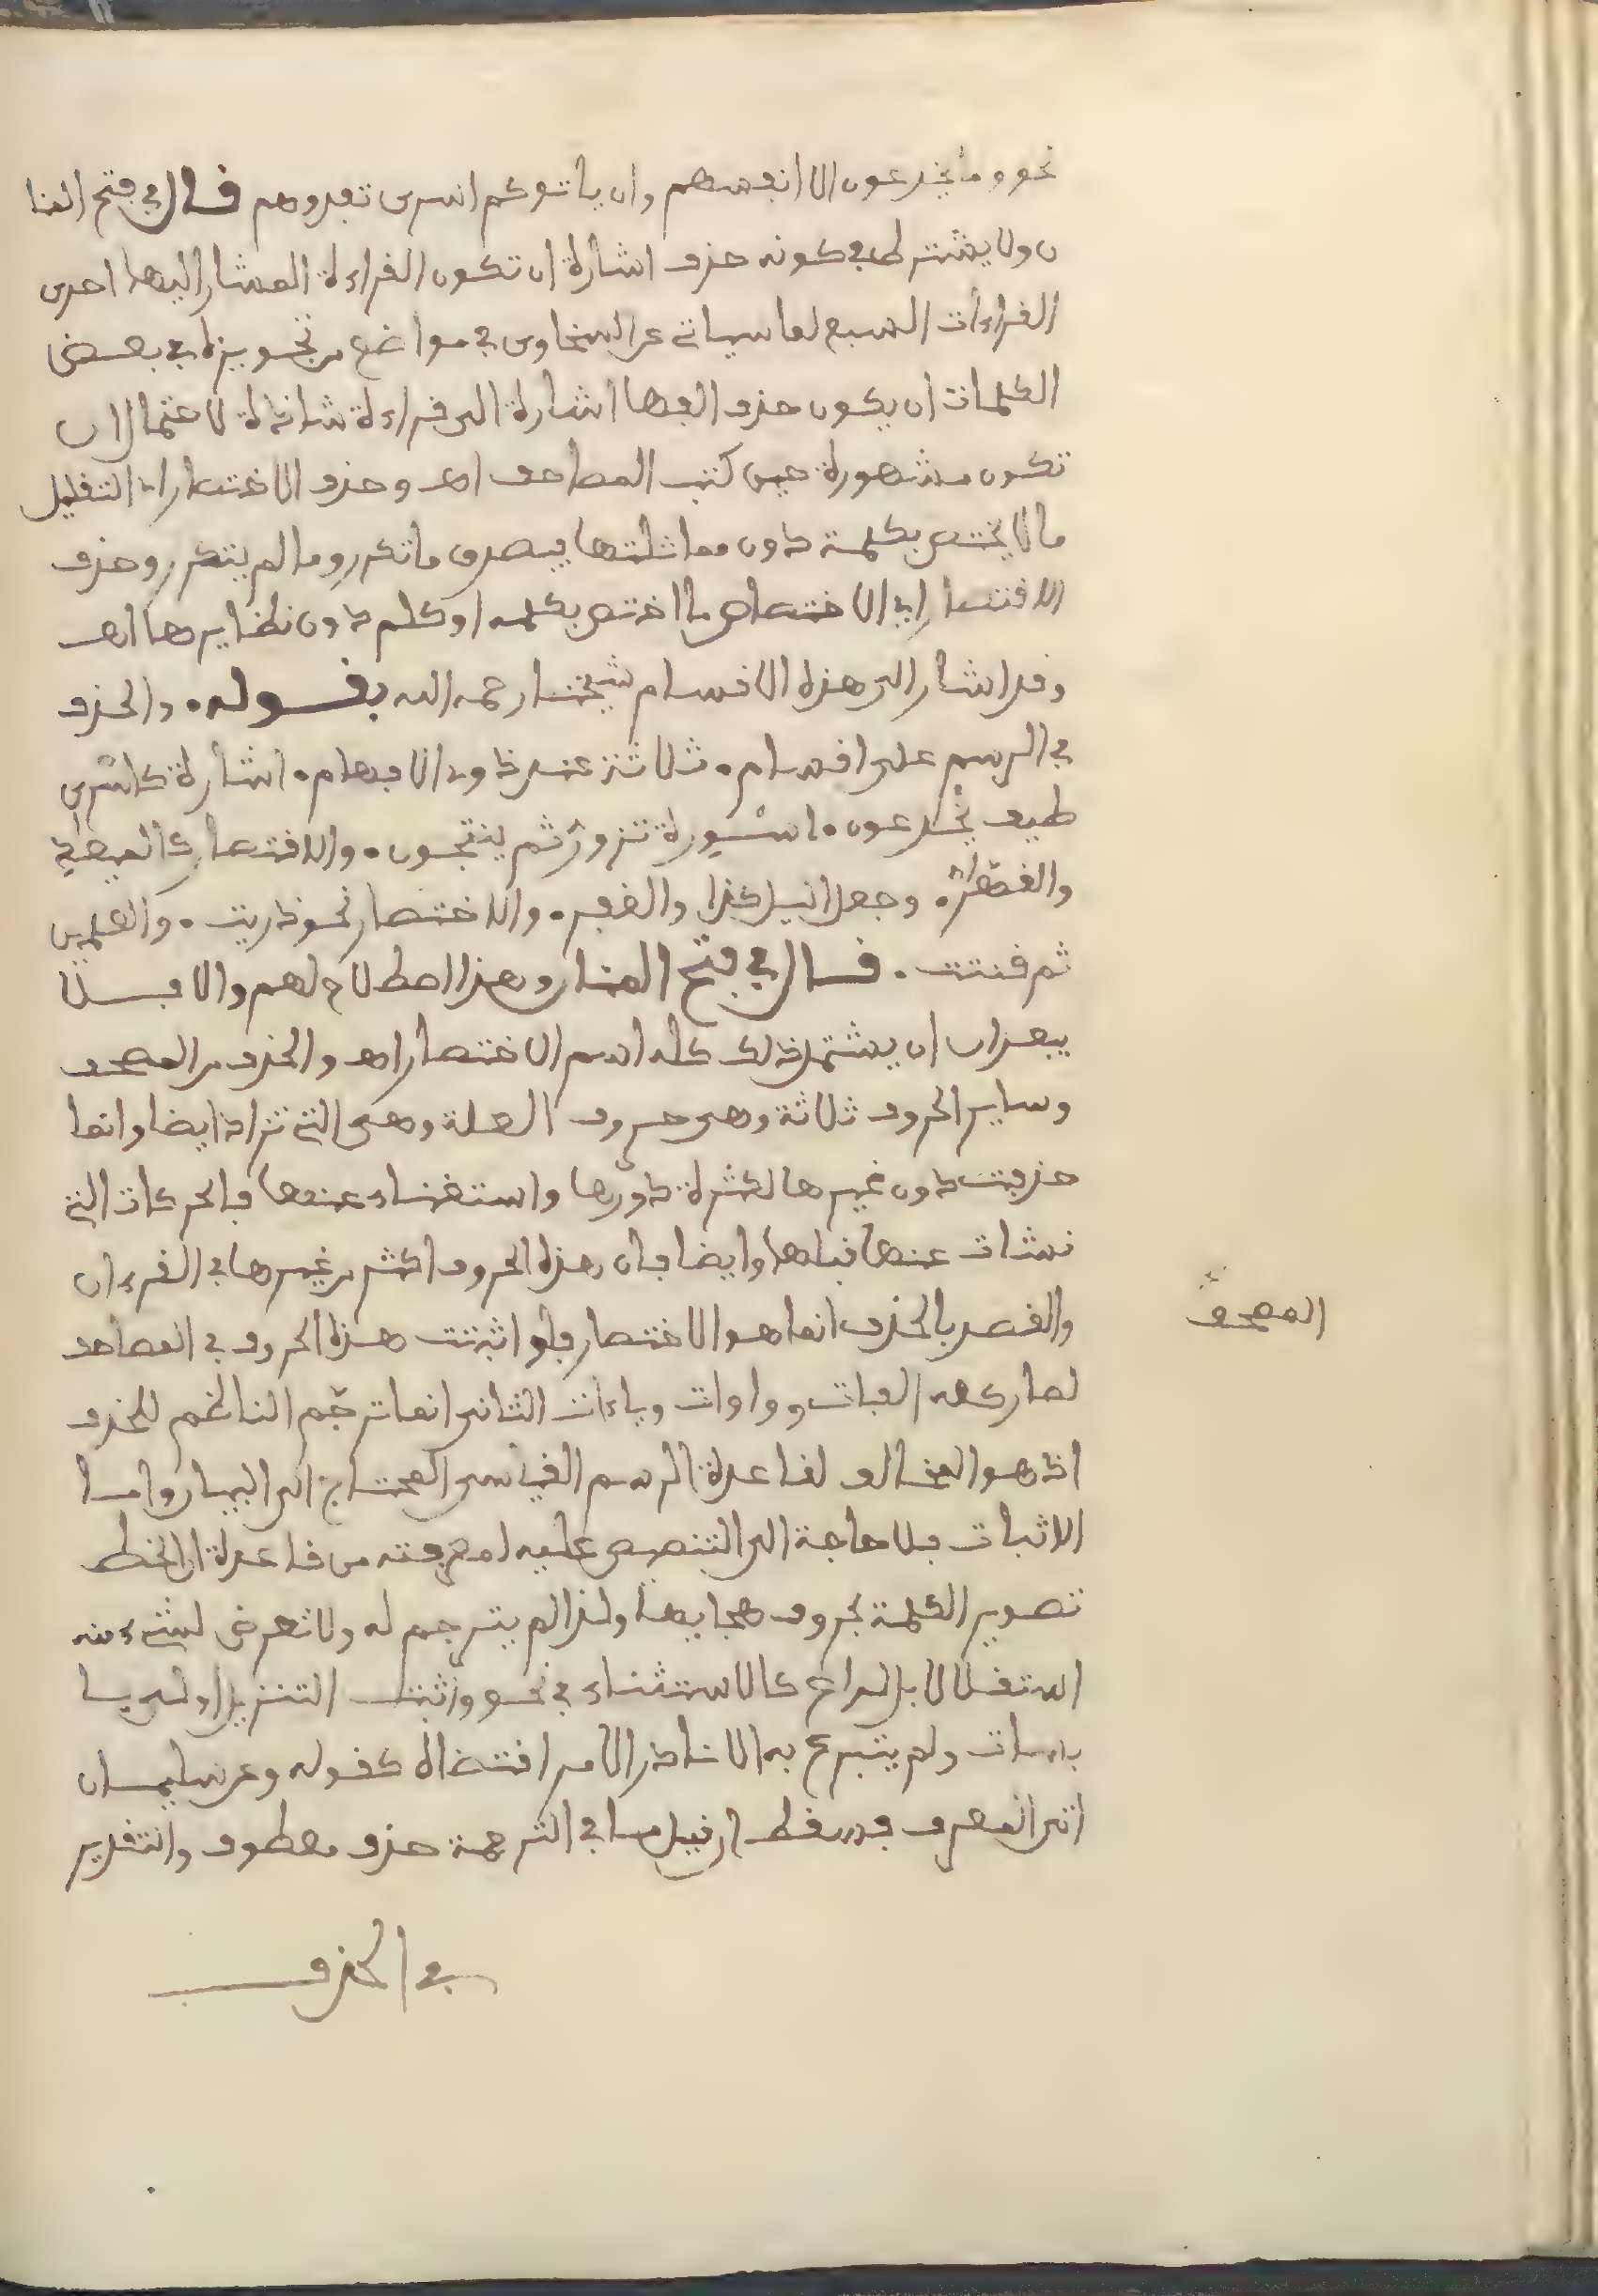 نحو وما يخدعون الا انفسهم وان ياتوكم اسرى تفدوهم قال في فتح المنا
ن ولا يشترط في كونه حذف اشارة ان تكون القراءة المشار اليها احدى
القراءات السبع لما سياتي عن السخاوي في مواضع من تجويزه في بعض
الكلمات ان يكون حذف الفها اشارة الى قراءة شاذة لاحتمال ان
تكون مشهورة حين كتب المصاحف اهـ وحذف الاختصار اي التقليل
ما لا يختص بكلمة دون مماثلتها فيصدق ما تكرر وما لم يتكرر وحذف
الاقتصار اي الاختصاص ما اختص بكلمه او كلم دون نظايرها اهـ
وقد اشار الى هذه الاقسام شيخنا رحمه الله بقوله • والحذف
في الرسم على اقسام • ثلاثة عند ذوي الافهام • اشارة كاسرى
طيف يخدعون • اسورة تزور ثم ينتجون • والاقتصار كالميعاد
والقهار • وجعل اليل كذا والفجر • والاختصار نحو ذريت • والعلمين
ثم قنتت • قال في فتح المنان وهذا اصطلاح لهم والا فلا
يبعد ان ان يشتمل ذلك كله اسم الاختصار اهـ والحذف من المصحف
وساير الحروف ثلاثة وهي حروف العلة وهي التي تزاد ايضا وانما
حذفت دون غيرها لكثرة دورها واستغناء عنها بالحركات التي
نشات عنها قبلها وايضا فان هذه الحروف اكثر من غيرها في القرءان
والقصد بالحذف انما هو الاختصار فلو اثبتت هذه الحروف في المصاحف
لصار كله الفات وواوات وياءات الثاني انما ترجم الناظم للحذف
اذ هو المخالف لقاعدة الرسم القياسي المحتاج الى البيان واما
الاثبات فلا حاجة الى التنصيص عليه لمعرفته من قاعدة ان الخط
تصوير الكلمة بحروف هجايها ولذا لم يترجم له ولا تعرض لشيء منه
استقلالا بل لداع كالاستثناء في نحو واثبت التنزيل اولى يا
بسات ولم يتبرع به الا نادر الامر اقتضاه كقوله وعن سليمان
اتى المعرف فقط ان قيل ما في الترجمة حذف معطوف والتقدير
في الحذف
المصحف